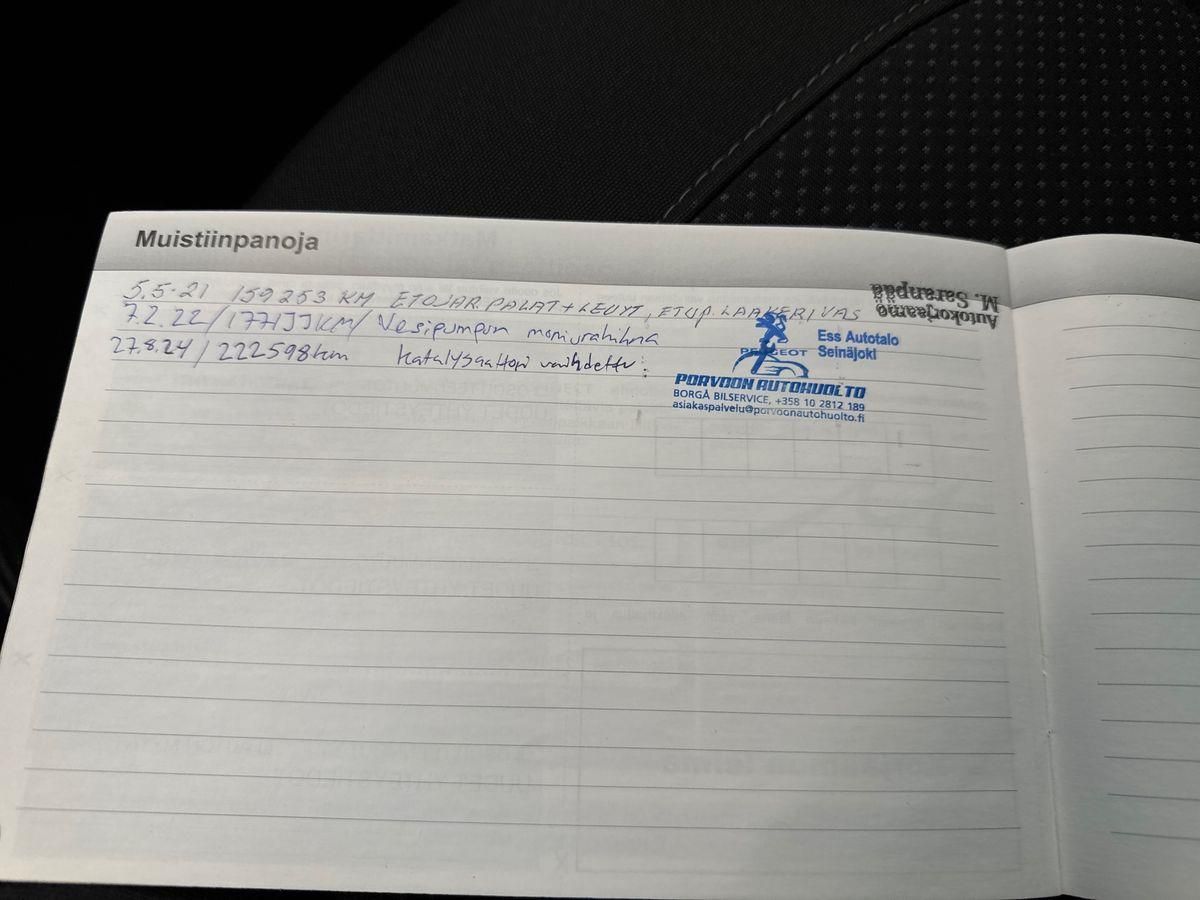 Muistiinpanoja
5.5-21 159253 KM ETUJAR.PALAT+LEVYT, ETUP. LAAKERI, VAS
Autokorjaamo
M. Saranpää
7.2.22/ KM/ Vesipumpun moniurahihna
27.8.24/222598km Katalysaattori vaihdettu:
PEUGEOT
Ess Autotalo
Seinäjoki
PORVOON AUTOHUOLTO
BORGÅ BILSERVICE, +358 10 2812 189
asiakaspalvelu@porvoonautohuolto.fi